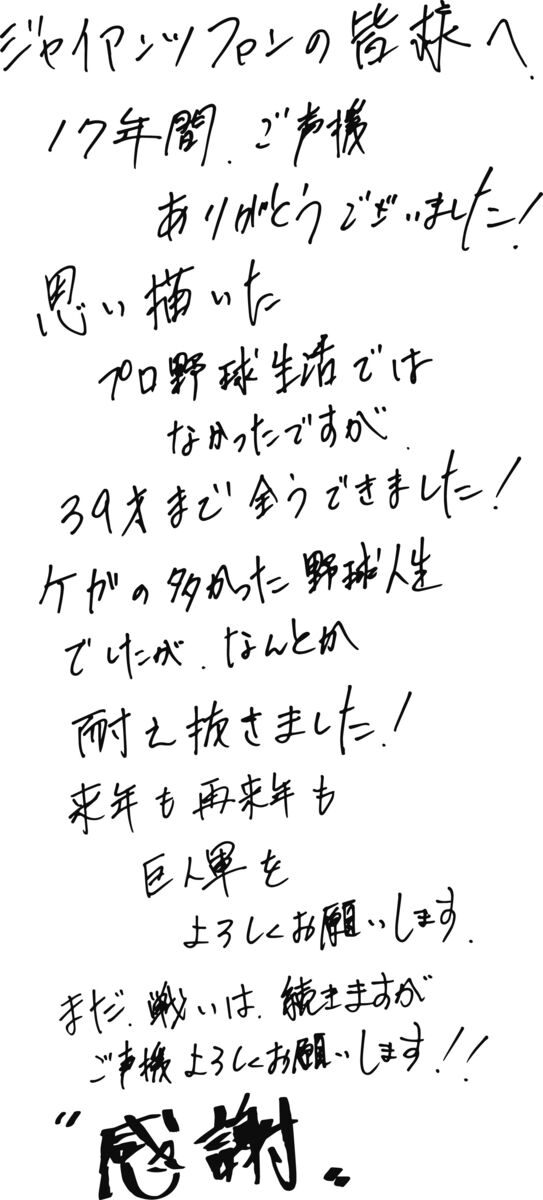 ジャイアンツファンの皆様へ
17年間、ご声援
ありがとうございました！
思い描いた
プロ野球生活では
なかったですが、
39才まで全うできました！
ケガの多かった野球人生
でしたが、なんとか
耐え抜きました！
来年も再来年も
巨人軍を
よろしくお願いします。
まだ、戦いは、続きますが
ご声援よろしくお願いします！！
〝感謝〟